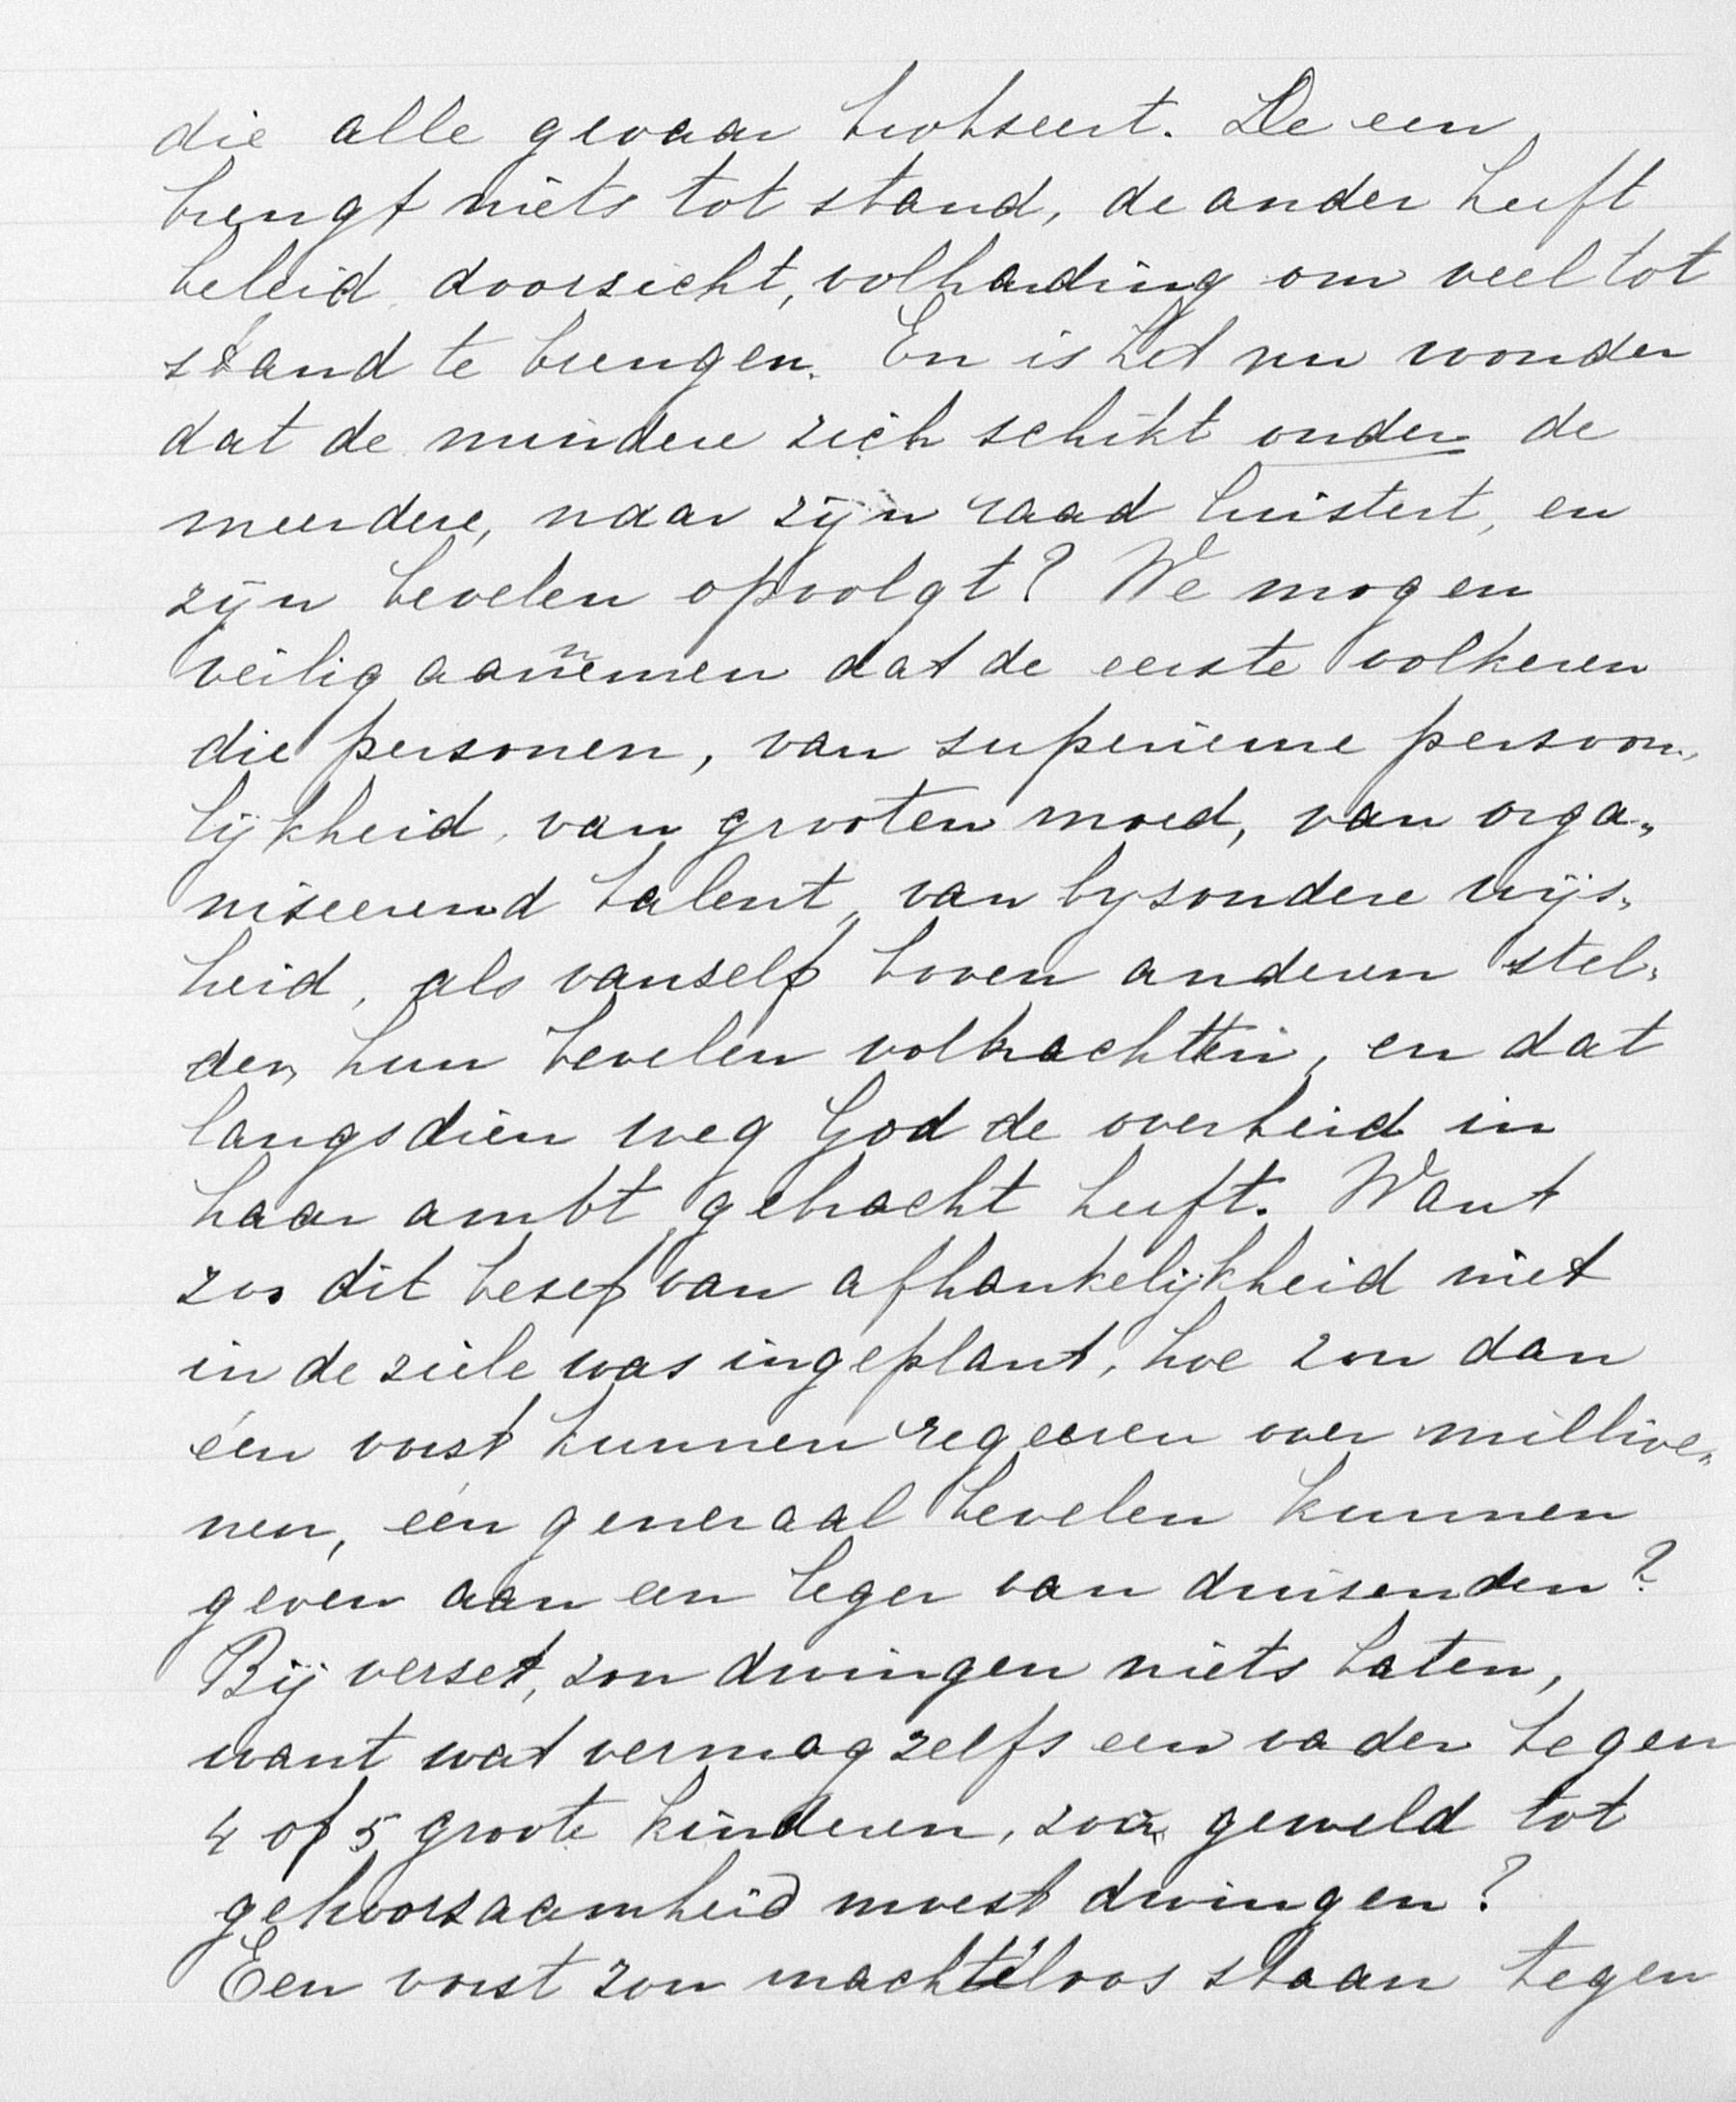 die alle gevaar trotseert. De een
brengt niets tot stand, de ander heeft
beleid, doorsicht, volharding om veel tot
stand te brengen. En is het nu wonder
dat de mindere zich schikt onder de
meerdere, naar zijn raad luistert, en
zijn bevelen opvolgt? We mogen
veilig aannemen dat de eerste volkeren
die personen, van superieure persoon„
lijkheid, van grooten moed, van orga„
niseerend talent, van bysondere wijs„
heid, als vanself boven anderen stel„
den, hun bevelen volbrachtten, en dat
langs dien weg God de overheid in
haar ambt gebracht heeft. Want
zoo dit besef van afhankelijkheid niet
in de ziele was ingeplant, hoe zou dan
één vorst kunnen regeeren over millioe„
nen, één generaal bevelen kunnen
geven aan een leger van duisenden?
Bij verset, zou dwingen niets baten,
want wat vermag zelfs een vader tegen
4 of 5 groote kinderen, zoo geweld tot
gehoorsaamheid moest dwingen?
Een vorst zou machteloos staan tegen